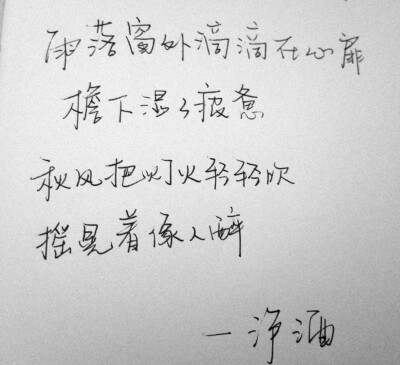 雨落窗外滴滴在心扉
檐下湿了疲惫
秋风把灯火轻轻吹
摇晃着像人醉
一净酒